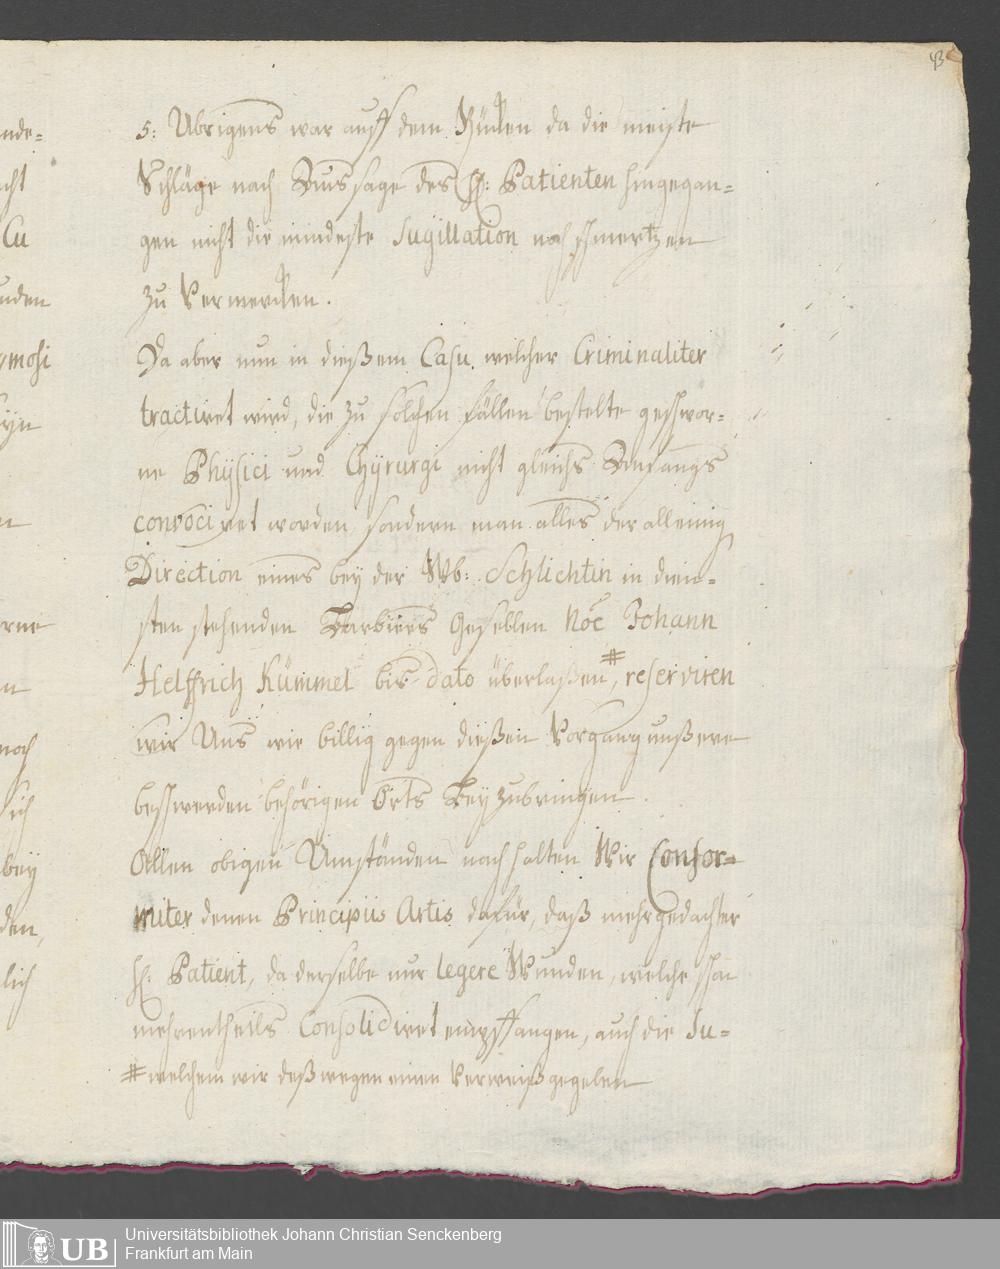 43
5: Ubrigens war auff dem Rücken da die meiste
Schläge nach Aussage des H: Patienten hingegan=
gen nicht die mindeste Sugillation noch schmertzen
zu Vermercken.
Da aber nun in dießem Casu, welcher Criminaliter
tractiret wird, die zu solchen fällen bestelte geschwor=
ne Physici und Chyrurgi nicht gleichs Anfangs
convociret worden, sondern man alles der alleinig
Direction eines bey der Wb: Schlichtin in dien=
sten stehenden Barbiers Gesellen Noe Johann
Helffrich Kümmel bis dato überlaßen #, reserviren
wir Uns wie billig gegen dießen Vorgang unßere
beschwerden behörigen Orts Beyzubringen.
Allen obigen Umständen nach halten Wir Confor=
miter denen Principiis Artis dafür, daß mehrgedachter
H: Patient, da derselbe nur legere Wunden, welche schon
mehrentheils Consolidiret empffangen, auch die Su=
# welchem wir deßwegen einen Verweiß gegeben
nde=
cht
Cu
nden
ymosi
eyn
n
rne
n
noch
sich
bey
den,
lich
UB
Universitätsbibliothek Johann Christian Senckenberg
Frankfurt am Main